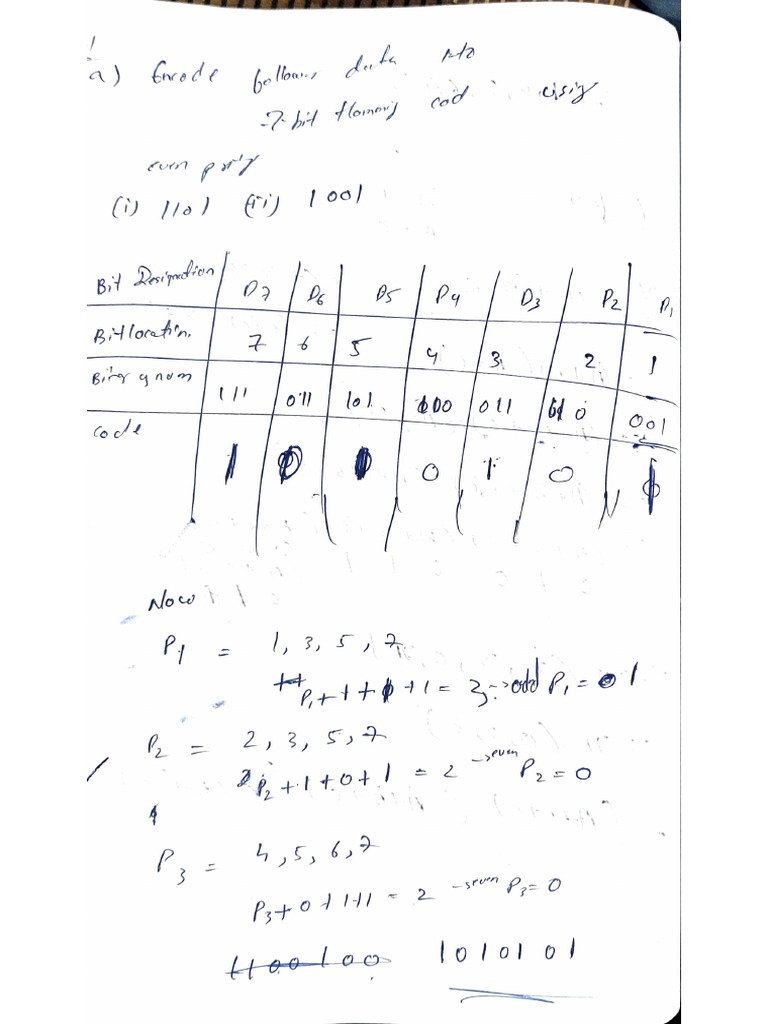 1
a) Encode follow, data into
7-bit Hamming cod using
even parity
(i) 1101 (ii) 1001
Bit Designation D7 D6 D5 P4 D3 P2 P1
Bit location. 7 6 5 4 3 2 1
111 011 101 100 011 010 001
code 1 0 1 0 1 0 1
Now
P1 = 1, 3, 5, 7
P1 + 1 + 1 + 1 = 3 → odd P1 = 1
P2 = 2, 3, 5, 7
P2 + 1 + 0 + 1 = 2 → even P2 = 0
P3 = 4, 5, 6, 7
P3 + 0 + 1 + 1 = 2 → even P3 = 0
1100100 1010101